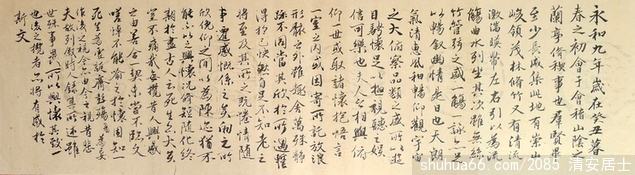 永和九年歲在癸丑暮
春之初會于會稽山陰之
蘭亭脩稧事也群賢畢
至少長咸集此地有崇山
峻領茂林脩竹又有清流
激湍暎帶左右引以為流
觴曲水列坐其次雖無絲
竹管弦之盛一觴一詠亦足
以暢叙幽情是日也天朗
氣清惠風和暢仰觀宇宙
之大俯察品類之盛所以遊
目騁懷足以極視聽之娛
信可樂也夫人之相與俯
仰一世或取諸懷抱悟言
一室之内或因寄所託放浪
形骸之外雖趣舍萬殊靜
躁不同當其欣於所遇暫
得於己快然自足不知老之
將至及其所之既惓情隨
事遷感慨係之矣向之所
欣俛仰之間以為陳迹猶不
能不以之興懷況脩短隨化終
期於盡古人云死生亦大矣
豈不痛哉每攬昔人興感
之由若合一契未嘗不臨文
嗟悼不能喻之於懷固知一
死生為虛誕齊彭殤為妄
作後之視今亦由今之視昔悲
夫故列叙時人錄其所述雖
世殊事異所以興懷其致一
也後之攬者亦將有感於
斯文
shuhua66.com/2085 清安居士